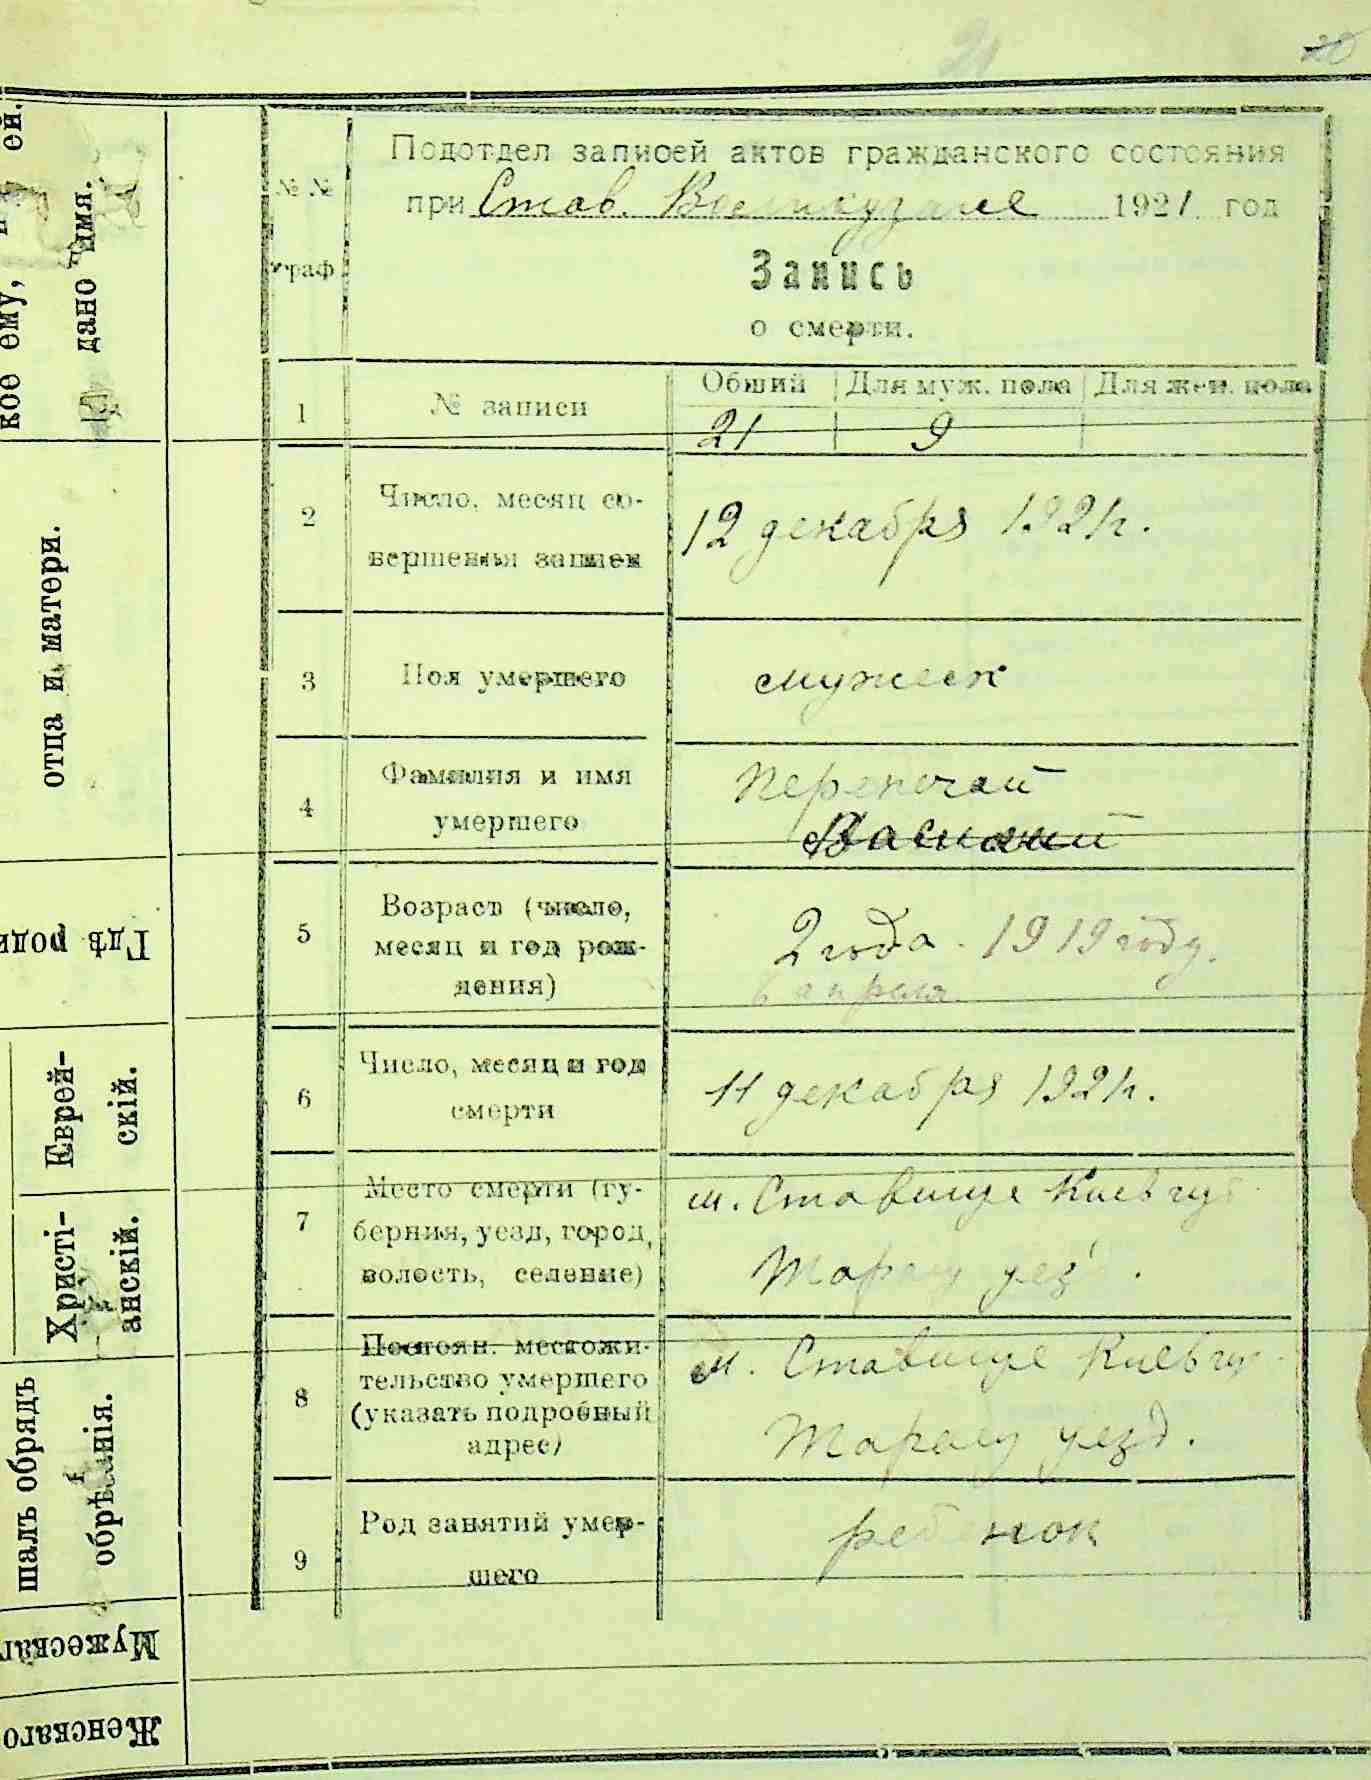 20
21
Подотдел записей актов гражданского состояния
при Став. 1921 год
№ №
граф
Запись
о смерти.
1 № записи
Общий Для муж. пола Для жен. пола
21 9
2 Число, месяц со-
вершенья записи
12 декабря 1921 г.
3 Пол умершего
мужеск
4 Фамилия и имя
умершего
Перепечай
Василий
5 Возраст (число,
месяц и год рож-
дения)
2 года. 1919 году.
6 апреля
6 Число, месяц и год
смерти
11 декабря 1921 г.
7 Место смерти (гу-
берния, уезд, город,
волость, селение)
м. Ставище Киев губ.
Таращ уезд.
8 Постоян. местожи-
тельство умершего
(указать подробный
адрес)
м. Ставище Киев губ.
Таращ уезд.
9 Род занятий умер-
шего
ребенок
кое ему,
ей.
дано имя.
отца и матери.
Гдѣ роди
Еврей-
скій.
Христі-
анскій.
шалъ обрядъ
обрѣзанія.
Мужескаг
Женскаго